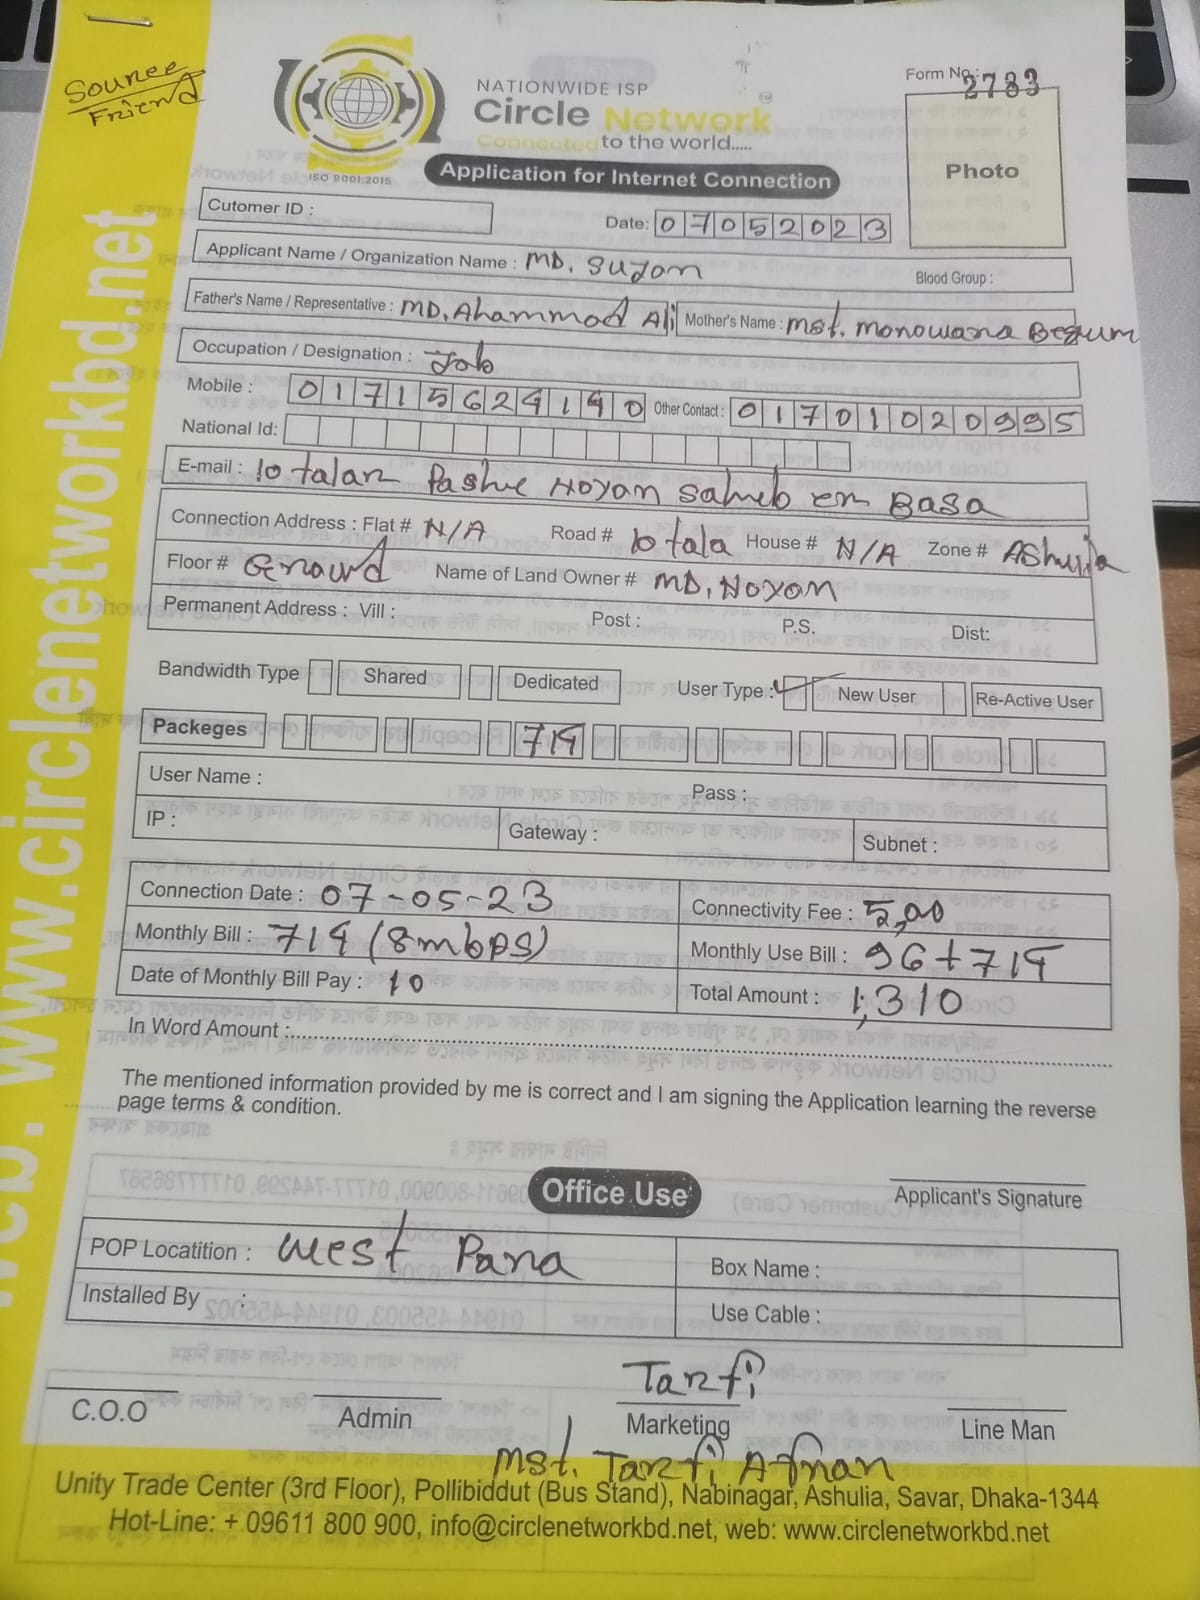 Sounce
Friend
NATIONWIDE ISP
Circle Network
Connected to the world.....
ISO 9001:2015
Application for Internet Connection
Form No.: 2783
Photo
Cutomer ID :
Date: 07052023
Applicant Name / Organization Name : MD. Sujon
Blood Group :
Father's Name / Representative : MD. Ahammod Ali Mother's Name : Mst. Monowana Begum
Occupation / Designation : Job
Mobile : 01715624140 Other Contact : 01701020995
National Id:
E-mail : 10 talar Pashe Noyan Saheb er Basa
Connection Address : Flat # N/A Road # 10 tala House # N/A Zone # Ashulia
Floor # Ground Name of Land Owner # MD. Noyan
Permanent Address : Vill : Post : P.S. Dist:
Bandwidth Type Shared Dedicated User Type : New User Re-Active User
Packeges 714
User Name : Pass :
IP : Gateway : Subnet :
Connection Date : 07-05-23 Connectivity Fee : 500
Monthly Bill : 714 (8mbps) Monthly Use Bill : 96+714
Date of Monthly Bill Pay : 10 Total Amount : 1,310
In Word Amount :
The mentioned information provided by me is correct and I am signing the Application learning the reverse
page terms & condition.
Applicant's Signature
Office Use
POP Locatition : West Para Box Name :
Installed By : Use Cable :
Tanfi
C.O.O Admin Marketing Line Man
Mst. Tanfi Afnan
Unity Trade Center (3rd Floor), Pollibiddut (Bus Stand), Nabinagar, Ashulia, Savar, Dhaka-1344
Hot-Line: + 09611 800 900, info@circlenetworkbd.net, web: www.circlenetworkbd.net
Web: www.circlenetworkbd.net